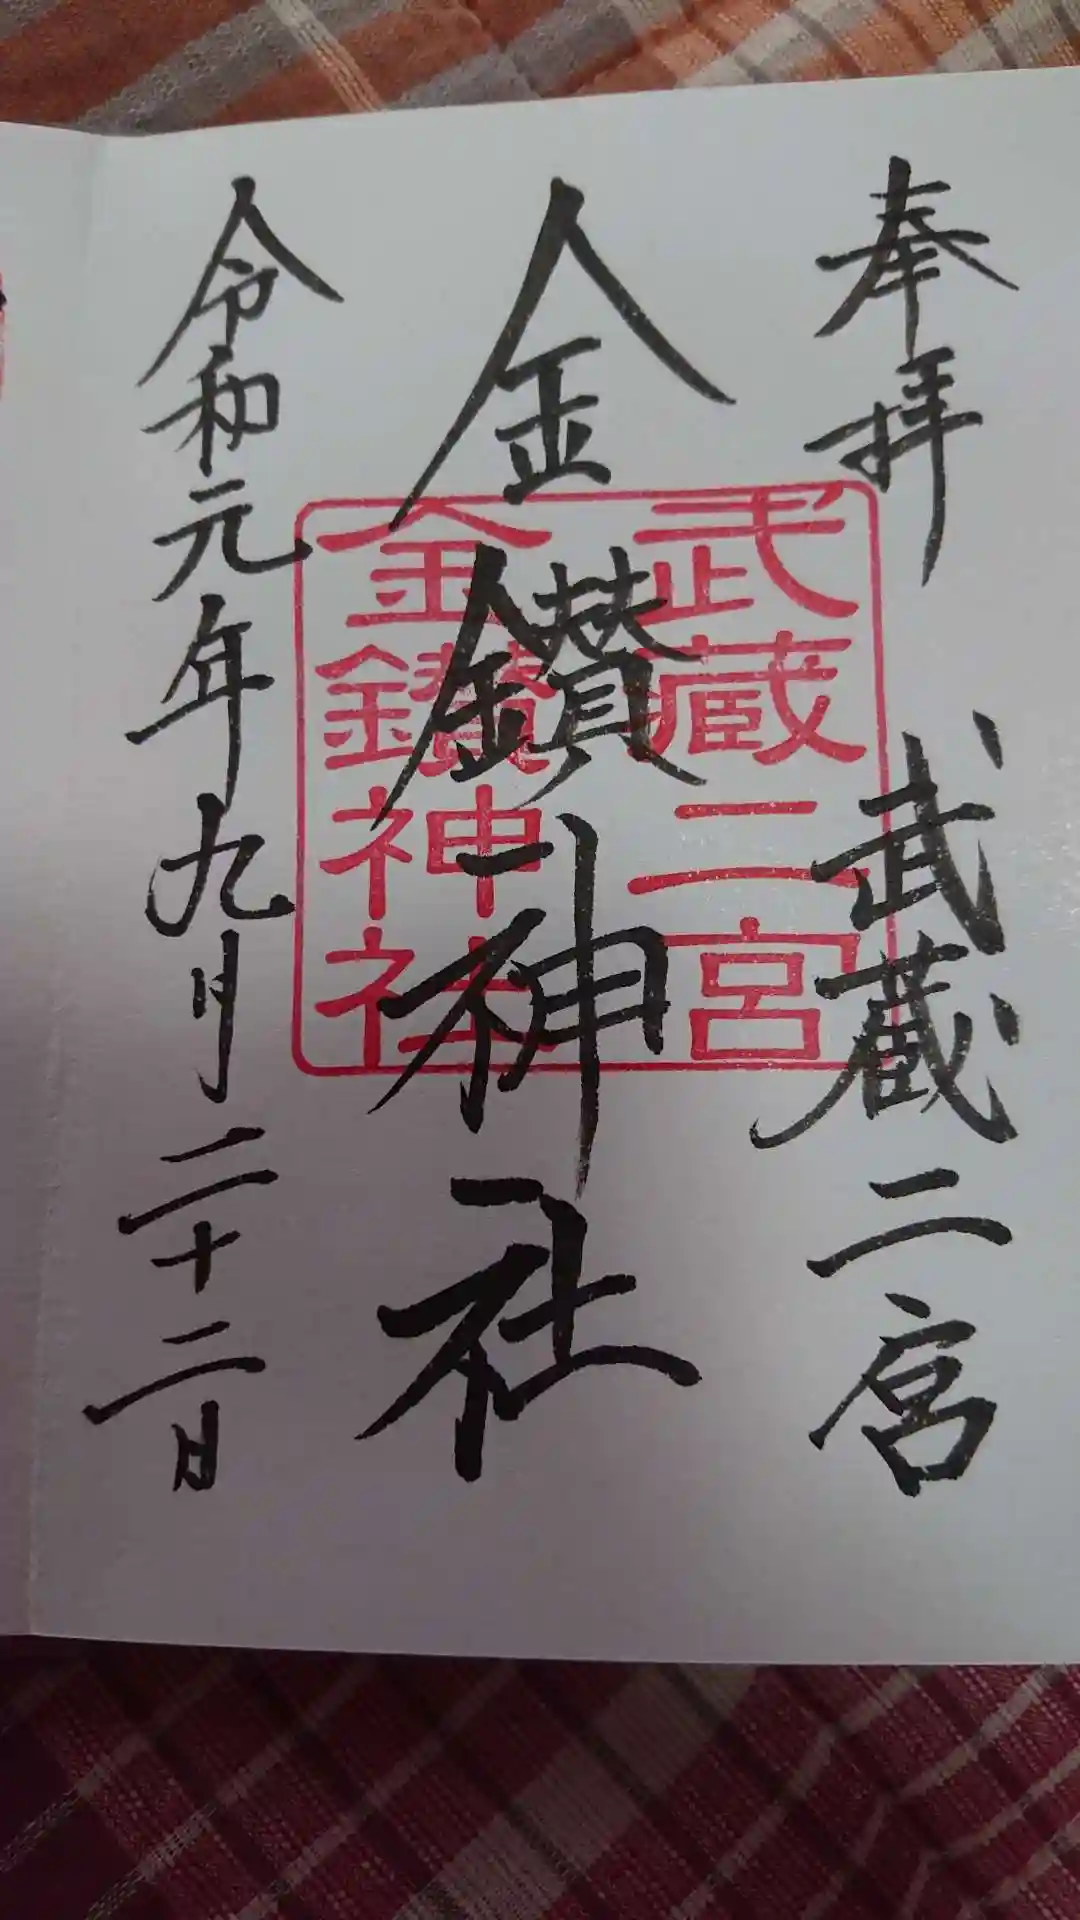 奉拝
武蔵二宮
金鑚神社
武蔵二宮
金鑚神社
令和元年九月二十二日